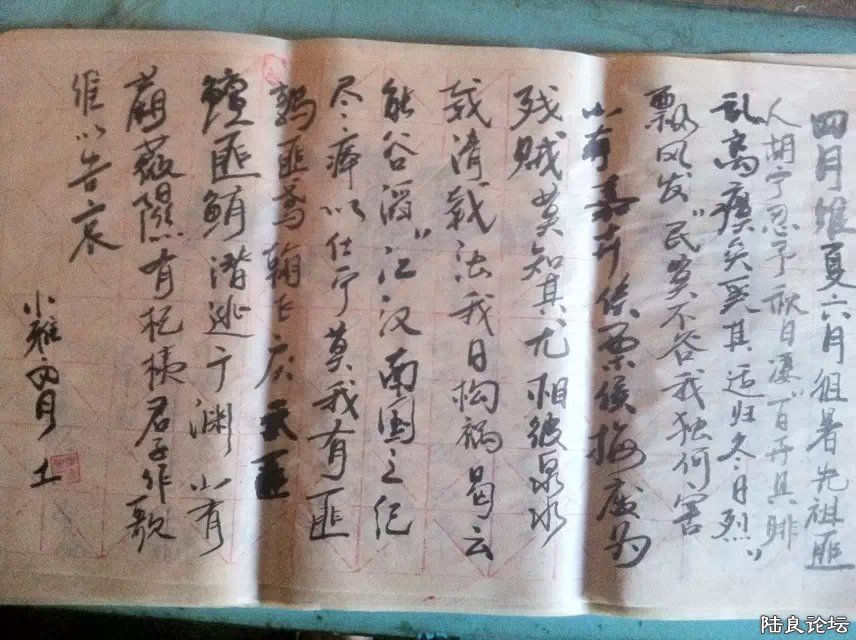 四月维夏六月徂暑先祖匪
人胡宁忍予秋日凄〃百卉具腓
乱离瘼矣爰其适归冬日烈〃
飘风发〃民莫不谷我独何害
山有嘉卉侯栗侯梅废为
残贼莫知其尤相彼泉水
载清载浊我日构祸曷云
能谷滔〃江汉南国之纪
尽瘁以仕宁莫我有匪
鹑匪鸢翰飞戾天匪
鳣匪鲔潜逃于渊山有
蕨薇隰有杞桋君子作歌
维以告哀
小雅四月
陆良论坛